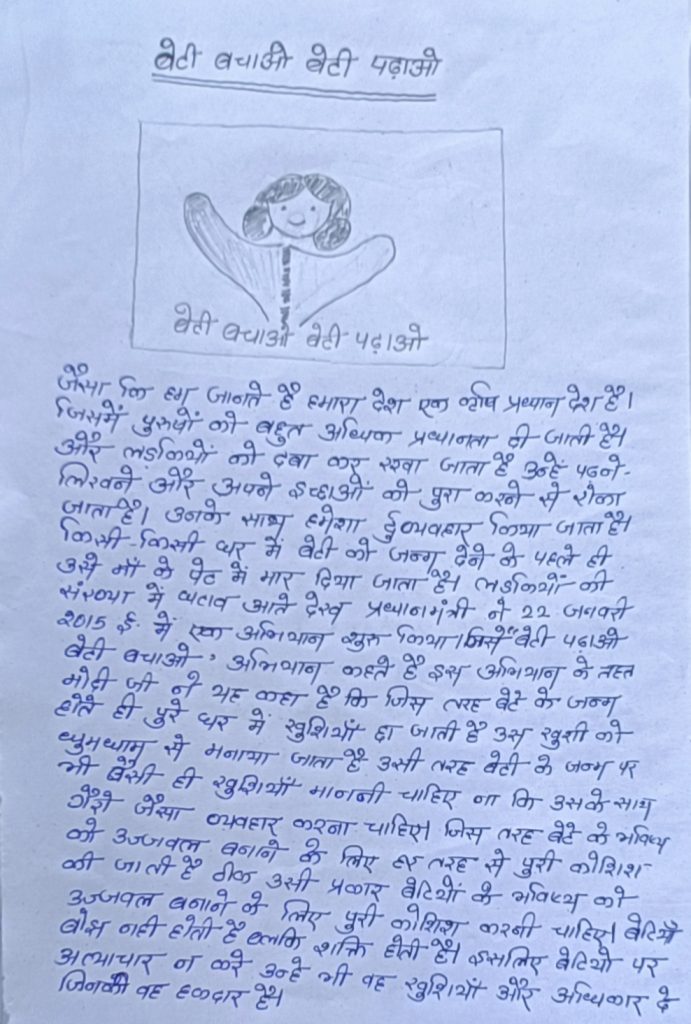 बेटी बचाओ बेटी पढ़ाओ
बेटी बचाओ बेटी पढ़ाओ
जैसा कि हम जानते है हमारा देश एक कृषि प्रधान देश है।
जिसमें पुरुषों को बहुत अधिक प्रधानता दी जाती है।
और लड़कियों को दबा कर रखा जाता है उन्हें पढने-
लिखने और अपने इच्छाओं को पुरा करने से रोका
जाता है। उनके साथ हमेशा र्दुव्यवहार किया जाता है।
किसी-किसी घर में बेटी को जन्म देने के पहले ही
उसे माँ के पेट में मार दिया जाता है। लडकियों की
संख्या में घटाव आते देख प्रधानमंत्री ने 22 जनवरी
2015 ई. में एक अभियान शुरू किया। जिसे "बेटी पढाओ
बेटी बचाओ' अभियान कहते है इस अभियान के तहत
मोदी जी ने यह कहा है कि जिस तरह बेटे के जन्म
होते ही पुरे घर में खुशियाँ छा जाती है उस खुशी को
धुमधाम से मनाया जाता है उसी तरह बेटी के जन्म पर
भी वैसी ही खुशियाँ माननी चाहिए ना कि उसके साथ
गैरो जैसा व्यवहार करना चाहिए। जिस तरह बेटे के भविष्य
को उज्जवल बनाने के लिए हर तरह से पुरी कोशिश
की जाती है ठीक उसी प्रकार बेटियों के भविष्य को
उज्जवल बनाने के लिए पुरी कोशिश करनी चाहिए। बेटियाँ
बोझ नही होती है बलकि शक्ति होती है। इसलिए बेटियो पर
अत्याचार न करे उन्हे भी वह खुशियाँ और अधिकार दे
जिनकी वह हकदार है।